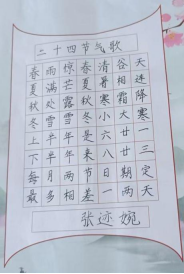 二十四节气歌
春雨惊春清谷天
夏满芒夏暑相连
秋处露秋寒霜降
冬雪雪冬小大寒
上半年是六廿一
下半年来八廿三
每月两节日期定
最多相差一两天
张迹婉